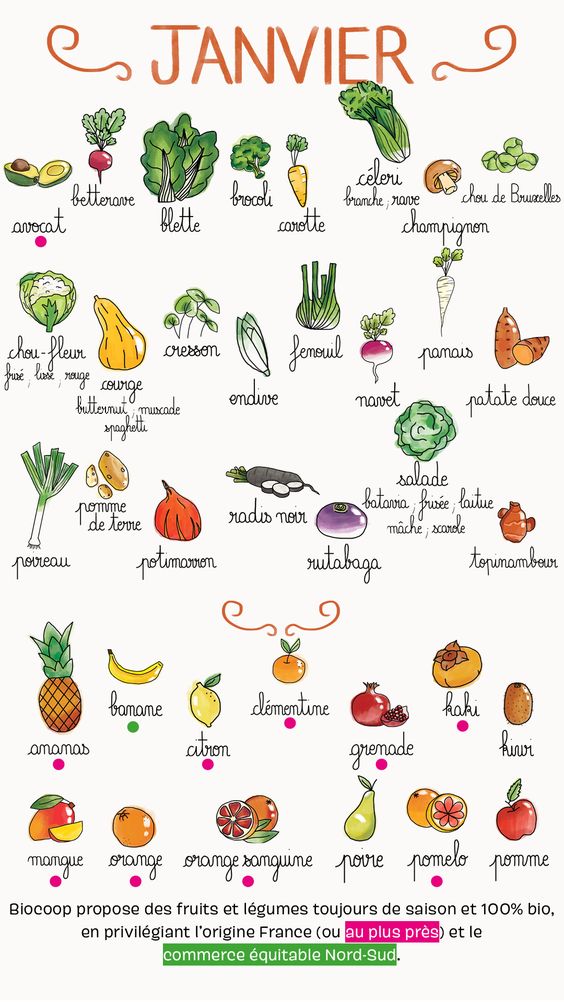 JANVIER
avocat
betterave
blette
brocoli
carotte
céleri
branche ; rave
champignon
chou de Bruxelles
chou-fleur
frisé ; lisse ; rouge
courge
butternut ; muscade
spaghetti
cresson
endive
fenouil
navet
panais
patate douce
poireau
pomme
de terre
potimarron
radis noir
rutabaga
salade
batavia ; frisée ; laitue
mâche ; scarole
topinambour
ananas
banane
citron
clémentine
grenade
kaki
kiwi
mangue
orange
orange sanguine
poire
pomelo
pomme
Biocoop propose des fruits et légumes toujours de saison et 100% bio,
en privilégiant l'origine France (ou au plus près) et le
commerce équitable Nord-Sud.